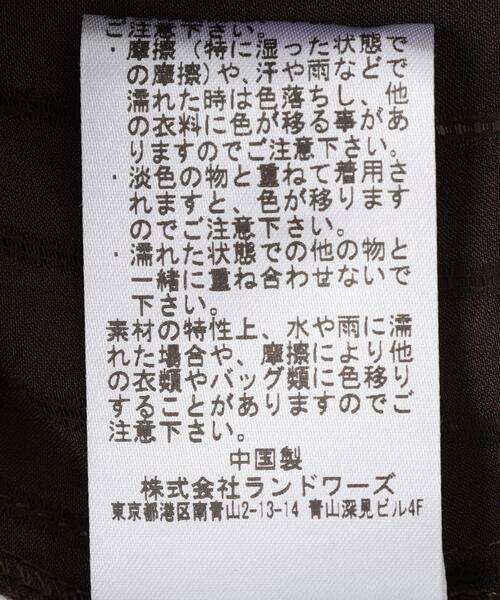 ご注意下さい。
・摩擦(特に湿った状態で
の摩擦)や、汗や雨などで
濡れた時は色落ちし、他
の衣料に色が移る事があ
りますのでご注意下さい。
・淡色の物と重ねて着用さ
れますと、色が移ります
のでご注意下さい。
・濡れた状態での他の物と
一緒に重ね合わせないで
下さい。
素材の特性上、水や雨に濡
れた場合や、摩擦により他
の衣類やバッグ類に色移り
することがありますのでご
注意下さい。
中国製
株式会社ランドワーズ
東京都港区南青山2-13-14 青山深見ビル4F